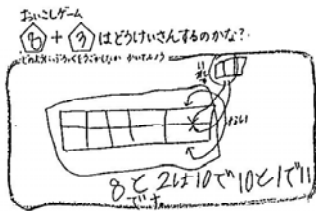 おいこしゲーム
8 + 3 はどうけいさんするのかな?
どのようにぶろっくをうごかしたか かいてみよう
8と2は10で10と1で11
です。